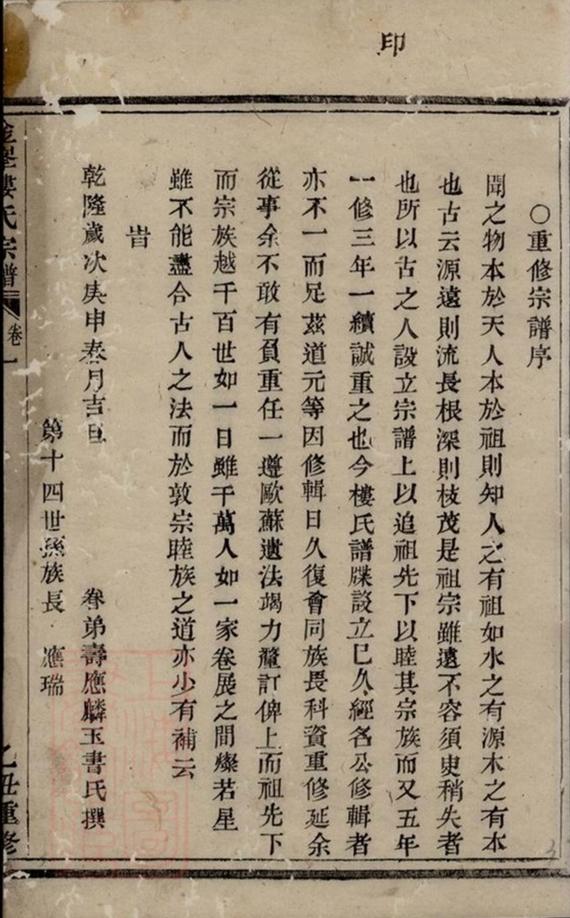 印
○重修宗譜序
聞之物本於天人本於祖則知人之有祖如水之有源木之有本
也古云源遠則流長根深則枝茂是祖宗雖遠不容須臾稍失者
也所以古之人設立宗譜上以追祖先下以睦其宗族而又五年
一修三年一續誠重之也今樓氏譜牒設立已久經名公修輯者
亦不一而足茲道元等因修輯日久復會同族長科資重修延余
從事余不敢有負重任一遵歐蘇遺法竭力釐訂俾上而祖先下
而宗族越千百世如一日雖千萬人如一家卷展之間燦若星
雖不能盡合古人之法而於敦宗睦族之道亦少有補云
旹
乾隆歲次庚申春月吉旦 眷弟壽應麟玉書氏撰
第十四世孫族長 應瑞
樓氏宗譜 卷一 乙丑重修